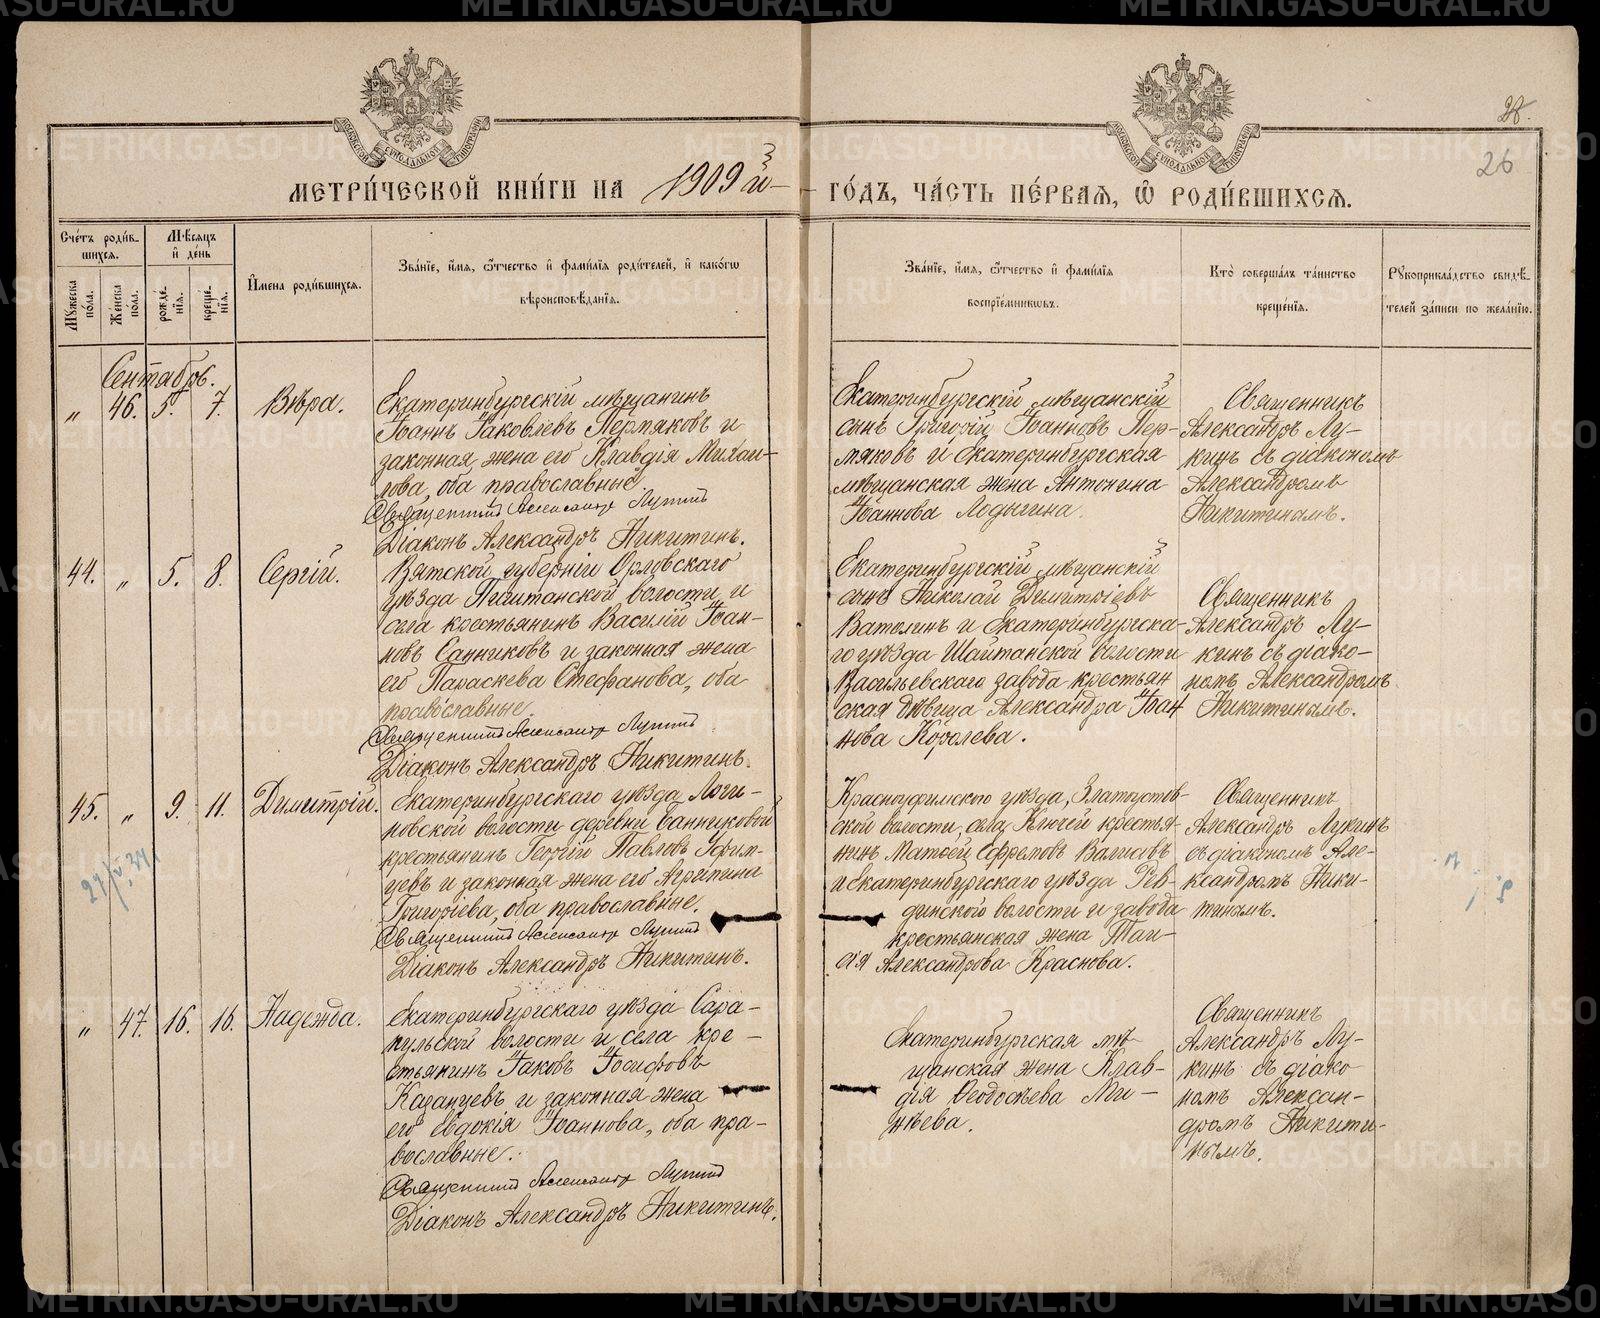 28.
26
МЕТРИ́ЧЕСКОЙ КНИ́ГИ НА 1909й
ГО́ДЪ, ЧА́СТЬ ПЕ́РВАЯ, Ѽ РОДИ́ВШИХСЯ.
Сче́тъ роди́в-
шихся.
Му́жеска
по́ла.
Же́нска
по́ла.
Мѣ́сяцъ
и҆ де́нь
рожде́-
нїя.
креще́-
нїя.
И҆мена роди́вшихся.
Зва́нїе, и҆́мя, ѻ҆́тчество и҆ фами́лїя роди́телей, и҆ како́гѡ
вѣроисповѣ́данїя.
Зва́нїе, и҆́мя, ѻ҆́тчество и҆ фами́лїя
воспрїе́мникѡвъ.
Кто̀ соверша́лъ та́инство
креще́нїя.
Рꙋкоприкла́дство свидѣ́-
телей за́писи по жела́нїю.
Сентябрь.
„ 46. 5. 7. Вѣра.
Екатеринбургскій мѣщанинъ
Іоаннъ Іаковлевъ Пермяковъ и
законная жена его Клавдія Михаи-
лова, оба православные
Священникъ Александръ Лукинъ
Діаконъ Александръ Никитинъ.
Екатеринбургскій мѣщанскій
сынъ Григорій Іоанновъ Пер-
мяковъ и Екатеринбургская
мѣщанская жена Антонина
Іоаннова Лодыгина.
Священникъ
Александръ Лу-
кинъ съ діакономъ
Александромъ
Никитинымъ.
44. „ 5. 8. Сергій.
Вятской губерніи Орловскаго
уѣзда Пиштанской волости и
села крестьянинъ Василій Іоан-
новъ Санниковъ и законная жена
его Параскева Стефанова, оба
православные.
Священникъ Александръ Лукинъ
Діаконъ Александръ Никитинъ.
Екатеринбургскій мѣщанскій
сынъ Николай Димитріевъ
Ватолинъ и Екатеринбургска-
го уѣзда Шайтанской волости
Васильевскаго завода крестьян
ская дѣвица Александра Іоан
нова Королева.
Священникъ
Александръ Лу-
кинъ съ діако-
номъ Александромъ
Никитинымъ.
45. „ 9. 11. Димитрій.
Екатеринбургскаго уѣзда Логи-
новской волости деревни Банниковой
крестьянинъ Георгій Павловъ
и законная жена его Агриппина
Григоріева, оба православные.
Священникъ Александръ Лукинъ
Діаконъ Александръ Никитинъ.
Красноуфимского уѣзда, Златоустов-
ской волости, села Ключей крестья-
нинъ Матѳей Ефремовъ
и Екатеринбургскаго уѣзда Рев-
динского волости и завода
крестьянская жена Таи-
сія Александрова Краснова.
Священникъ
Александръ Лукинъ
съ діакономъ Але-
ксандромъ Ники-
тинымъ.
„ 47. 16. 16. Надежда.
Екатеринбургскаго уѣзда Сара-
пульской волости и села кре-
стьянинъ Іаковъ Іосифовъ
Казанцевъ и законная жена
его Евдокія Іоаннова, оба пра-
вославные.
Священникъ Александръ Лукинъ
Діаконъ Александръ Никитинъ.
Екатеринбургская мѣ-
щанская жена Клав-
дія Ѳеодосѣева Ми-
нѣева.
Священникъ
Александръ Лу-
кинъ съ діако
номъ Алексан-
дромъ Никити-
нымъ.
METRIKI.GASO-URAL.RU